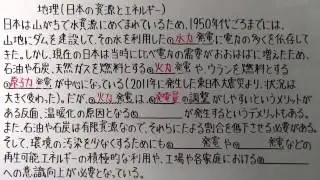 地理(日本の資源とエネルギー)
日本は山がちで水資源にめぐまれているため、1950年代ごろまでには、
山地にダムを建設して、その水を利用した①水力発電に電力の多くを依存して
きた。しかし、現在の日本は当時に比べ電力の需要がおおはばに増えたため、
石油や石炭、天然ガスを燃料とする②火力発電やウランを燃料とする
③原子力発電が中心になっている(2011年に発生した東日本大震災より、状況は
大きく変わった)。だが、④火力発電は、⑤発電量の調整がしやすいというメリットが
ある反面、温暖化の原因となる⑥が発生するというデメリットもある。
また、石油や石炭は有限資源なので、それらにたよる割合を低下させる必要がある。
そして、環境の汚染を少なくするためにも⑦発電や⑧発電などの
再生可能エネルギーの積極的な利用や、工場や各家庭における⑨
への意識向上が必要となっている。